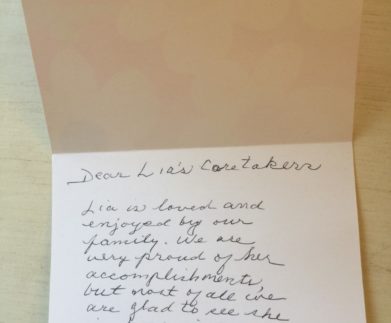 Dear Lia's Caretakers
Lia is loved and
enjoyed by our
family. We are
very proud of her
accomplishments,
but most of all we
are glad to see the